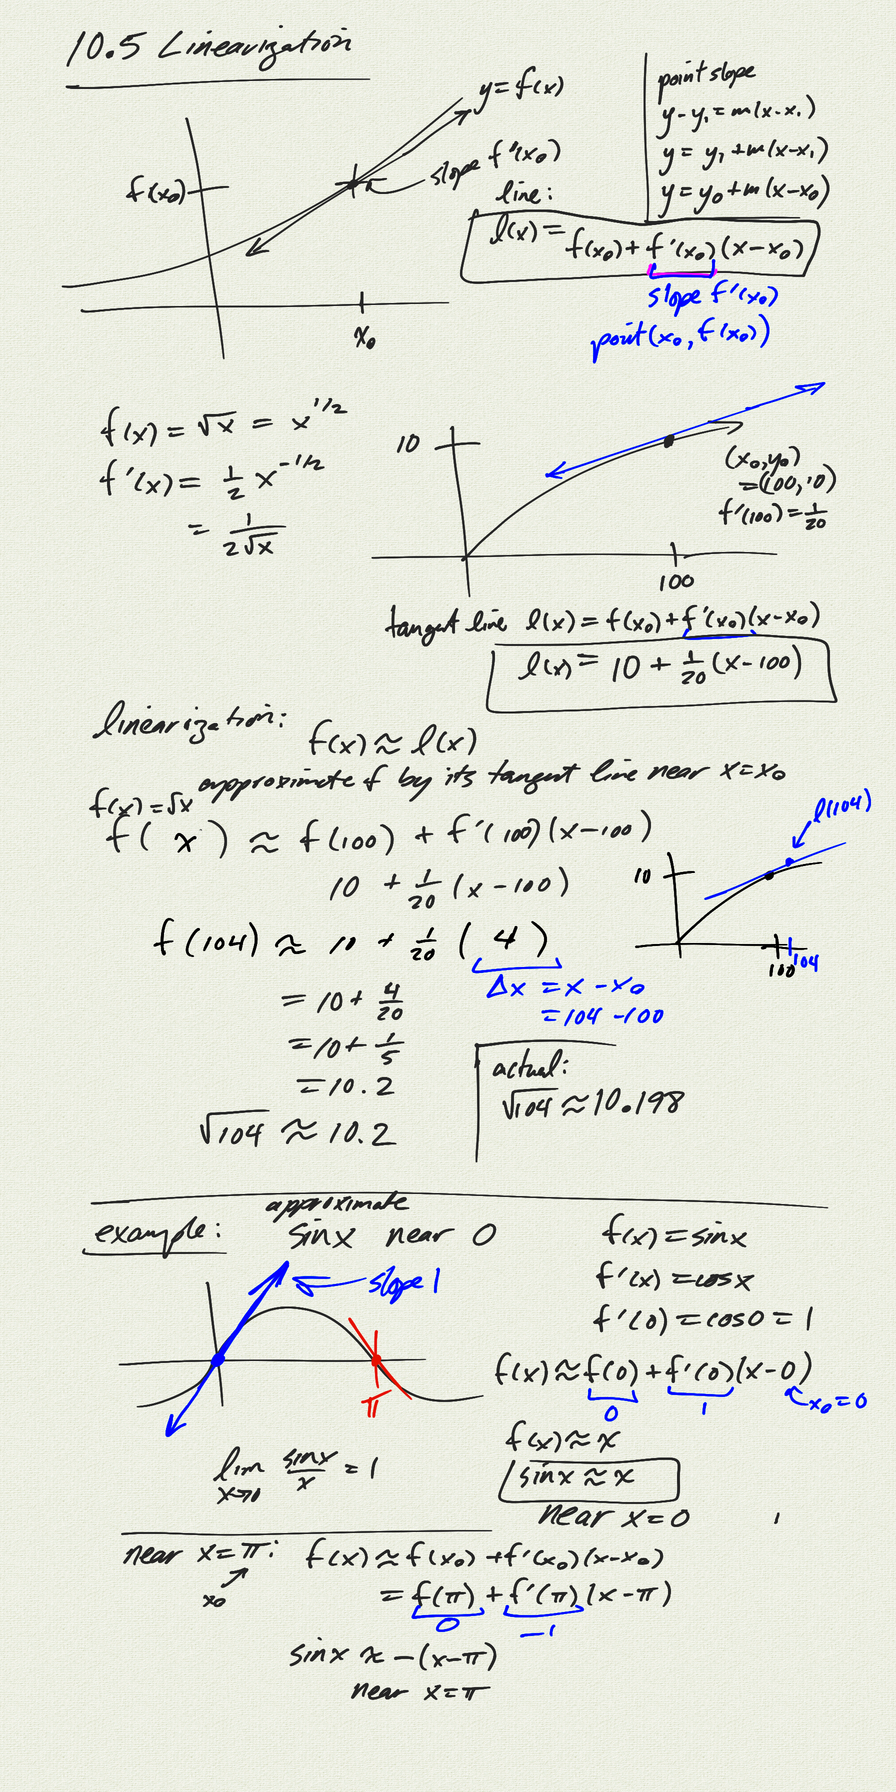 10.5 Linearization
y = f(x)
f(x₀)
slope f'(x₀)
x₀
point slope
y - y₁ = m(x - x₁)
y = y₁ + m(x - x₁)
y = y₀ + m(x - x₀)
line:
l(x) = f(x₀) + f'(x₀)(x - x₀)
slope f'(x₀)
point (x₀, f(x₀))
f(x) = √x = x^1/2
f'(x) = 1/2 x^-1/2
= 1/(2√x)
10
(x₀, y₀)
= (100, 10)
f'(100) = 1/20
100
tangent line l(x) = f(x₀) + f'(x₀)(x - x₀)
l(x) = 10 + 1/20 (x - 100)
linearization:
f(x) ≈ l(x)
approximate f by its tangent line near x = x₀
f(x) = √x
f( x ) ≈ f(100) + f'(100)(x - 100)
10 + 1/20 (x - 100)
f(104) ≈ 10 + 1/20 ( 4 )
Δx = x - x₀
= 104 - 100
= 10 + 4/20
= 10 + 1/5
= 10.2
√104 ≈ 10.2
l(104)
10
100
104
actual:
√104 ≈ 10.198
example: approximate sinx near 0
slope 1
π
lim x→0 sinx/x = 1
f(x) = sinx
f'(x) = cosx
f'(0) = cos0 = 1
f(x) ≈ f(0) + f'(0)(x - 0)
0
1
x₀ = 0
f(x) ≈ x
sinx ≈ x
near x = 0
near x = π: f(x) ≈ f(x₀) + f'(x₀)(x - x₀)
x₀
= f(π) + f'(π)(x - π)
0
-1
sinx ≈ -(x - π)
near x = π